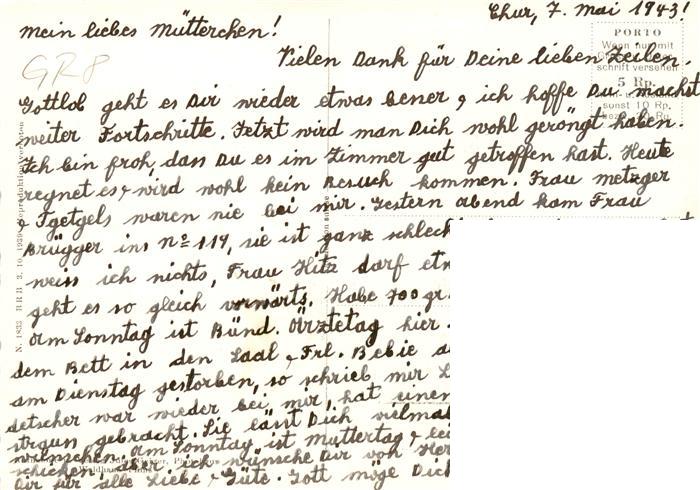 Chur, 7. Mai 1943!
Mein liebes Mütterchen!
PORTO
Wenn nur mit
schrift versehen
5 Rp.
sonst 10 Rp.
GR8
Vielen Dank für Deine lieben Zeilen.
Gottlob geht es Dir wieder etwas besser & ich hoffe Du machst
weiter Fortschritte. Jetzt wird man Dich wohl geröngt haben.
Ich bin froh, dass Du es im Zimmer gut getroffen hast. Heute
regnet es & wird wohl kein Besuch kommen. Frau Metzger
& Tgetgels waren nie bei mir. Gestern abend kam Frau
Brügger ins No 119, sie ist ganz schlech
weiss ich nichts, Frau Hitz darf etw
geht es so gleich vorwärts. Habe 700 gr.
Am Sonntag ist Bünd. Ärztetag hier.
dem Bett in den Saal & Frl. Bebie a
am Dienstag gestorben, so schrieb mir
detscher war wieder bei mir, hat einen
gebracht. Sie lässt Dich vielmal
wünschen. Am Sonntag ist Muttertag &
schicken, aber ich wünsche Dir von Her
Dir für alle Liebe & Güte. Gott möge Dich